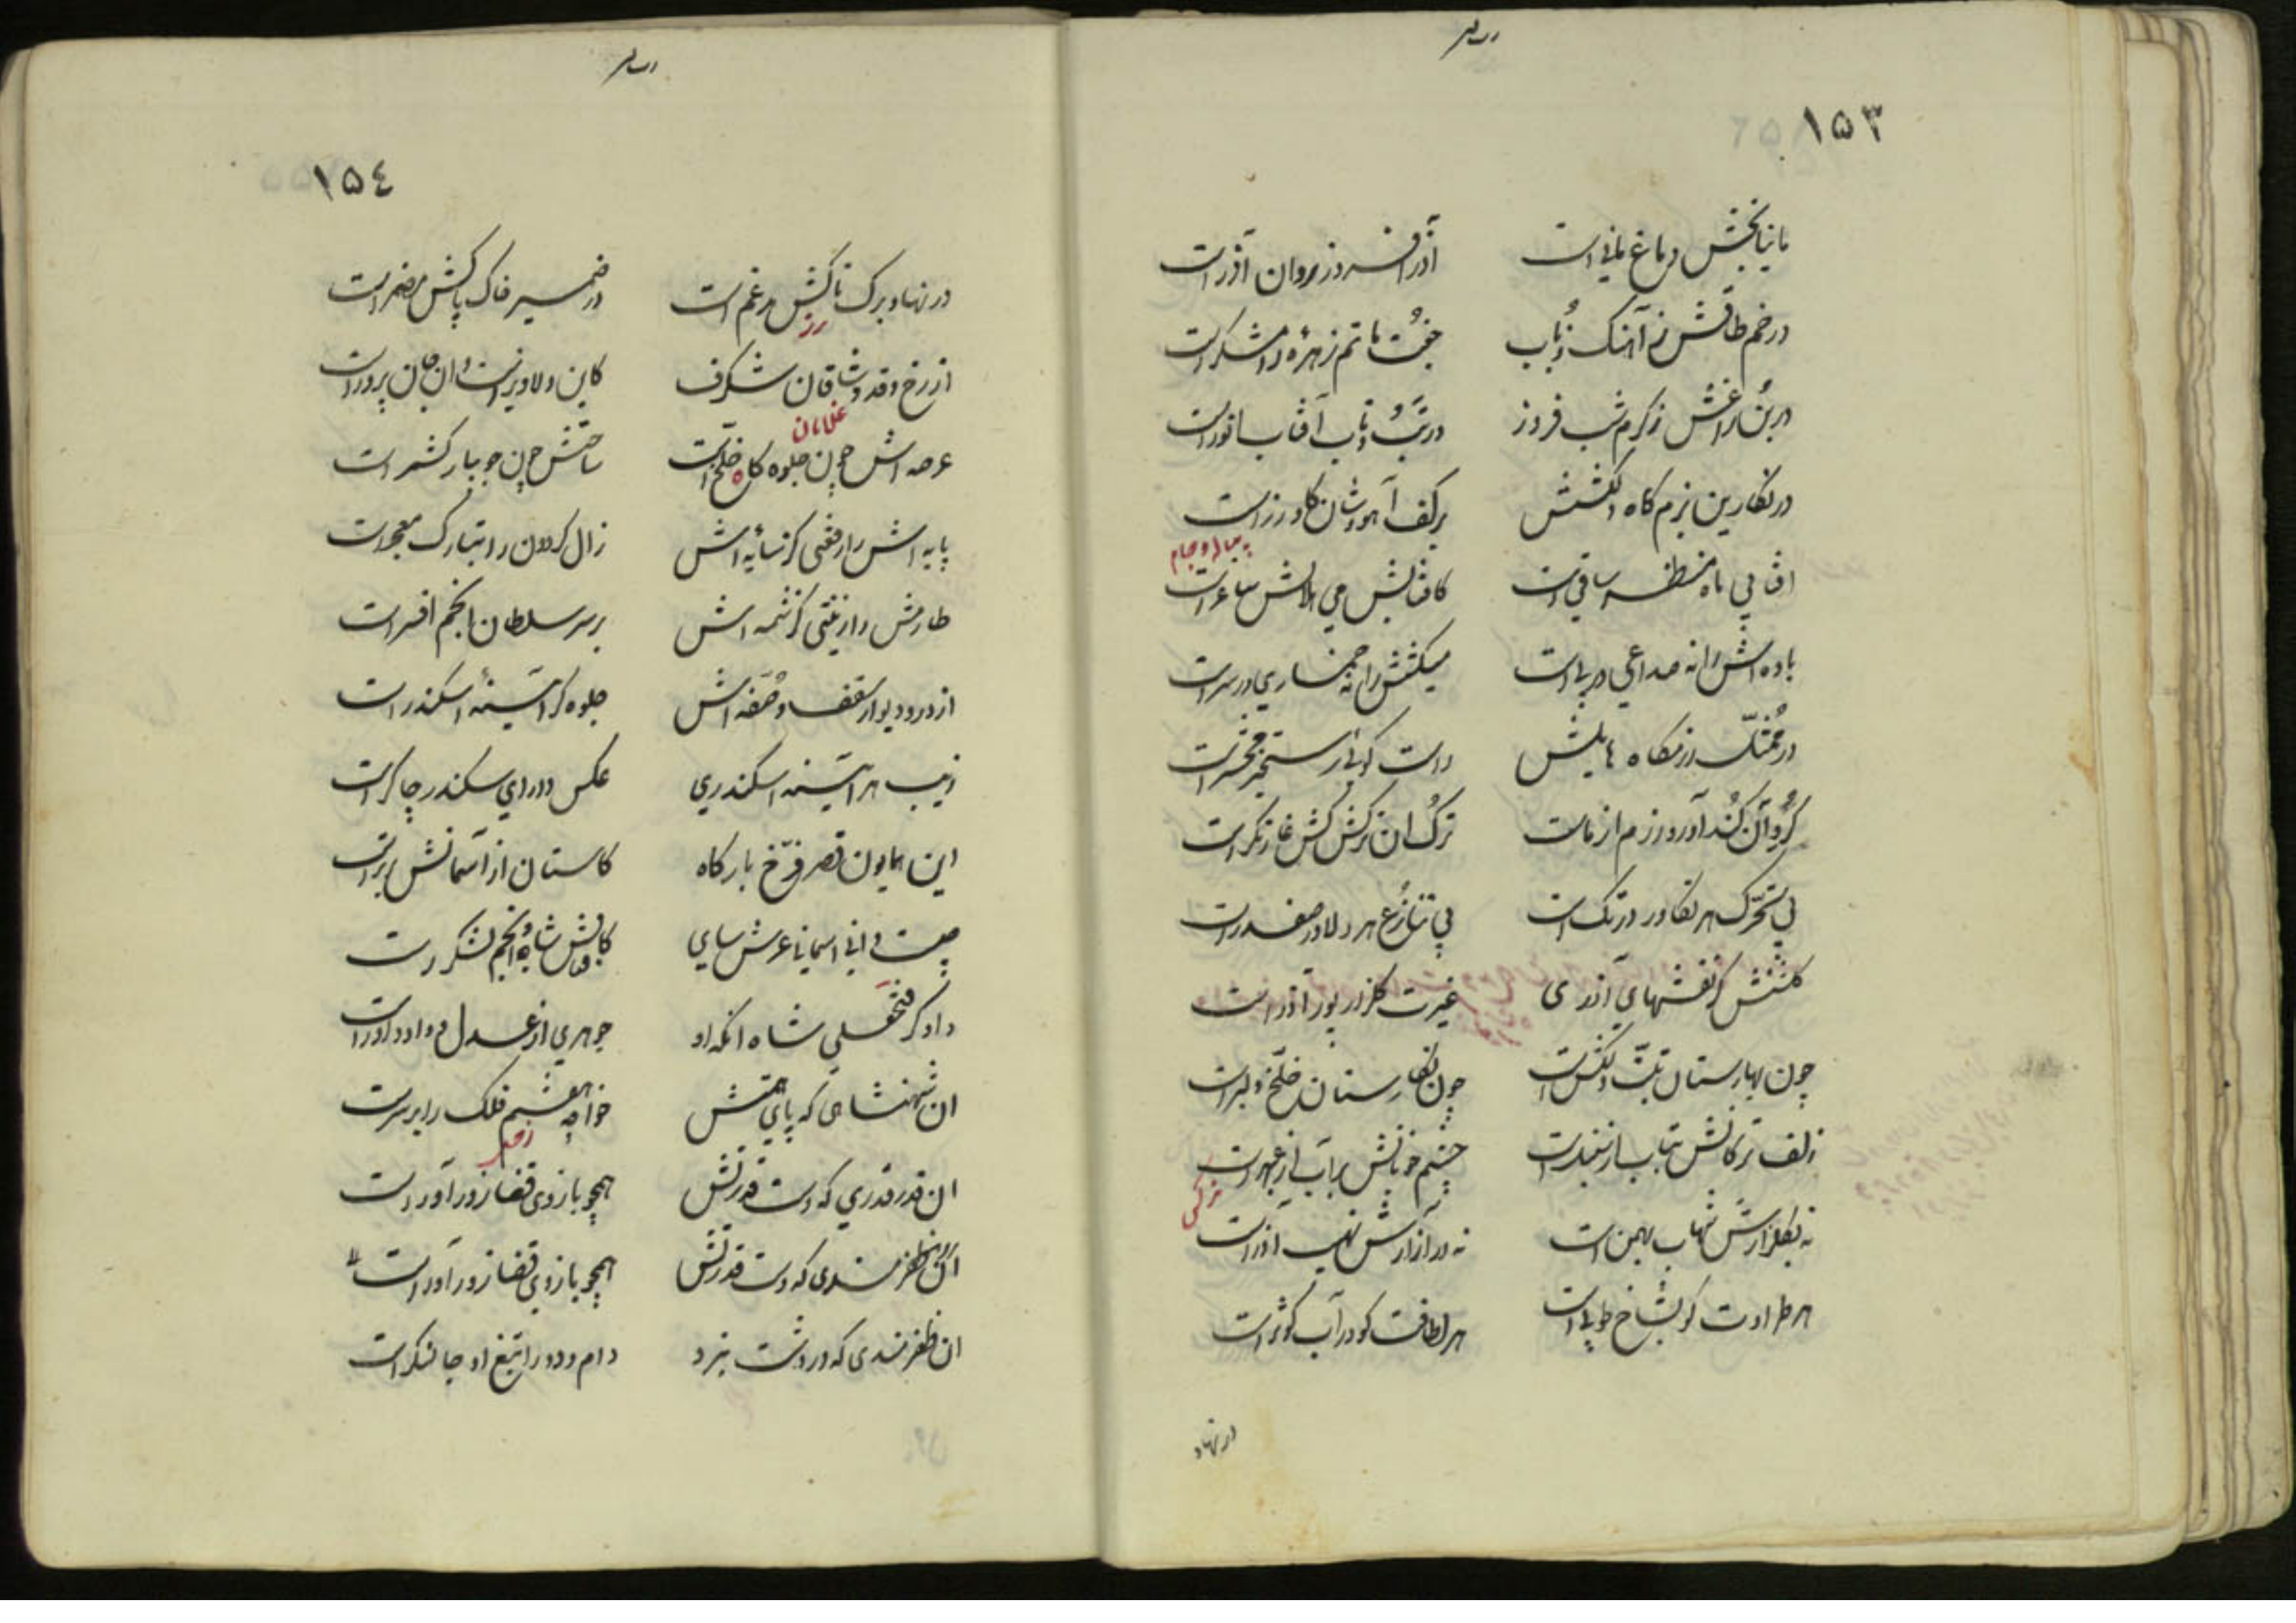 ۱۵۳
مانیا بخش دماغ مانی است آذر افروز روان آذر است
در خم طاقش ز آهنگ رُباب جفت ماتم زهرهٔ رامشگر است
در بُن راغش ز کرم شب فروز در تب و تاب آفتاب انور است
در نگارین بزم گاه دلکشش بر کف آهووشان گاو زر است
پیاله و جام
آفتابی ماه منظر ساقی است کافتابش می هلالش ساغر است
باده اش را نه صداعی در پی است میکشش را نه خماری در سر است
در رزمگاه هایلش راست گوئی رستخیز محشر است
گردان کُند آور و رزم آزماست ترک ان ترکش کش غارتگر است
بی تحرک هر تکاور در تک است بی تنازع هر دلاور صفدر است
گلشنش کز نقشهای آذری غیرت گلزار پور آذر است
چون بهارستان تبت دلکش است چون نگارستان خلّخ دلبر است
زلف ترکانش بتاب از است چشم خوبانش برآب از عبهر است
نرگس
نه بگلزارش شهاب بهمن است نه در آزارش نهیب آذر است
هر طراوت کو بشاخ طوبی است هر لطافت کو در آب کوثر است
در نهاد
۱۵٤
در نهاد برک تاکش مدغم است در ضمیر خاک پاکش مضمر است
رز
از رخ و قد وشاقان شکرف کاین دلاویز است و ان جان پرور است
غلمان
عرصه اش چون جلوه گاه خلّخ است ساحتش چون جویبار کشمر است
پایه اش را رفعتی کز سایه اش زال کردون را بتارک معجر است
طارمش را زینتی کز شمه اش بر سر سلطان انجم افسر است
از در و دیوار و سقف و صُفه اش جلوه گر آئینهٔ اسکندر است
زیب هر آئینه اسکندری عکس دارای سکندر چاکر است
این همایون قصر فرّخ بارگاه کاستان از آسمانش برتر است
چیست دانی آسمانا عرش سای کافتابش شاه انجم لشکر است
دادگر فتحعلی شاه انکه او جوهری از عدل و داد داور است
ان شهنشاهی که پای همتش خواجه هشتم فلک را بر سر است
ان قدر قدری که دست قدرتش همچو بازوی قضا زورآور است
ان ظفرمندی که دست قدرتش همچو بازوی قضا زورآور است
ان ظفرمندی که در دشت نبرد دام و دد را تیغ او است